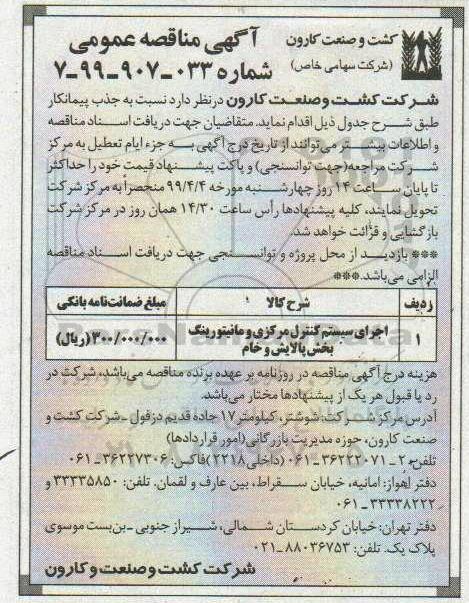 کشت و صنعت کارون
(شرکت سهامی خاص)
آگهی مناقصه عمومی
شماره ۰۳۳-۹۰۷-۹۹-۷
شرکت کشت وصنعت کارون درنظر دارد نسبت به جذب پیمانکار
طبق شرح جدول ذیل اقدام نماید. متقاضیان جهت دریافت اسناد مناقصه
و اطلاعات بیشتر می‌توانند از تاریخ درج آگهی به جزء ایام تعطیل به مرکز
شرکت مراجعه(جهت توانسنجی) و پاکت پیشنهاد قیمت خود را حداکثر
تا پایان ساعت ۱۴ روز چهارشنبه مورخه ۹۹/۴/۴ منحصراً به مرکز شرکت
تحویل نمایند، کلیه پیشنهادها رأس ساعت ۱۴/۳۰ همان روز در مرکز شرکت
بازگشایی و قرائت خواهد شد.
*** بازدید از محل پروژه و توانسنجی جهت دریافت اسناد مناقصه
الزامی می‌باشد.***
ردیف شرح کالا مبلغ ضمانت‌نامه بانکی
۱ اجرای سیستم کنترل مرکزی و مانیتورینگ بخش پالایش و خام ۳۰۰/۰۰۰/۰۰۰(ریال)
هزینه درج آگهی مناقصه در روزنامه بر عهده برنده مناقصه می‌باشد، شرکت در
رد یا قبول هر یک از پیشنهادها مختار می‌باشد.
آدرس مرکز شرکت: شوشتر، کیلومتر۱۷ جاده قدیم دزفول -شرکت کشت و
صنعت کارون، حوزه مدیریت بازرگانی(امور قراردادها)
تلفن: ۲-۳۶۲۲۲۰۷۱-۰۶۱ (داخلی۲۲۱۸)فاکس: ۳۶۲۲۷۳۰۶-۰۶۱
دفتر اهواز: امانیه، خیابان سقراط، بین عارف و لقمان. تلفن: ۳۳۳۳۵۸۵۰ و
۳۳۳۳۸۲۲۲-۰۶۱
دفتر تهران: خیابان کردستان شمالی، شیراز جنوبی -بن‌بست موسوی
پلاک یک. تلفن: ۸۸۰۳۶۷۵۳-۰۲۱
شرکت کشت وصنعت وکارون